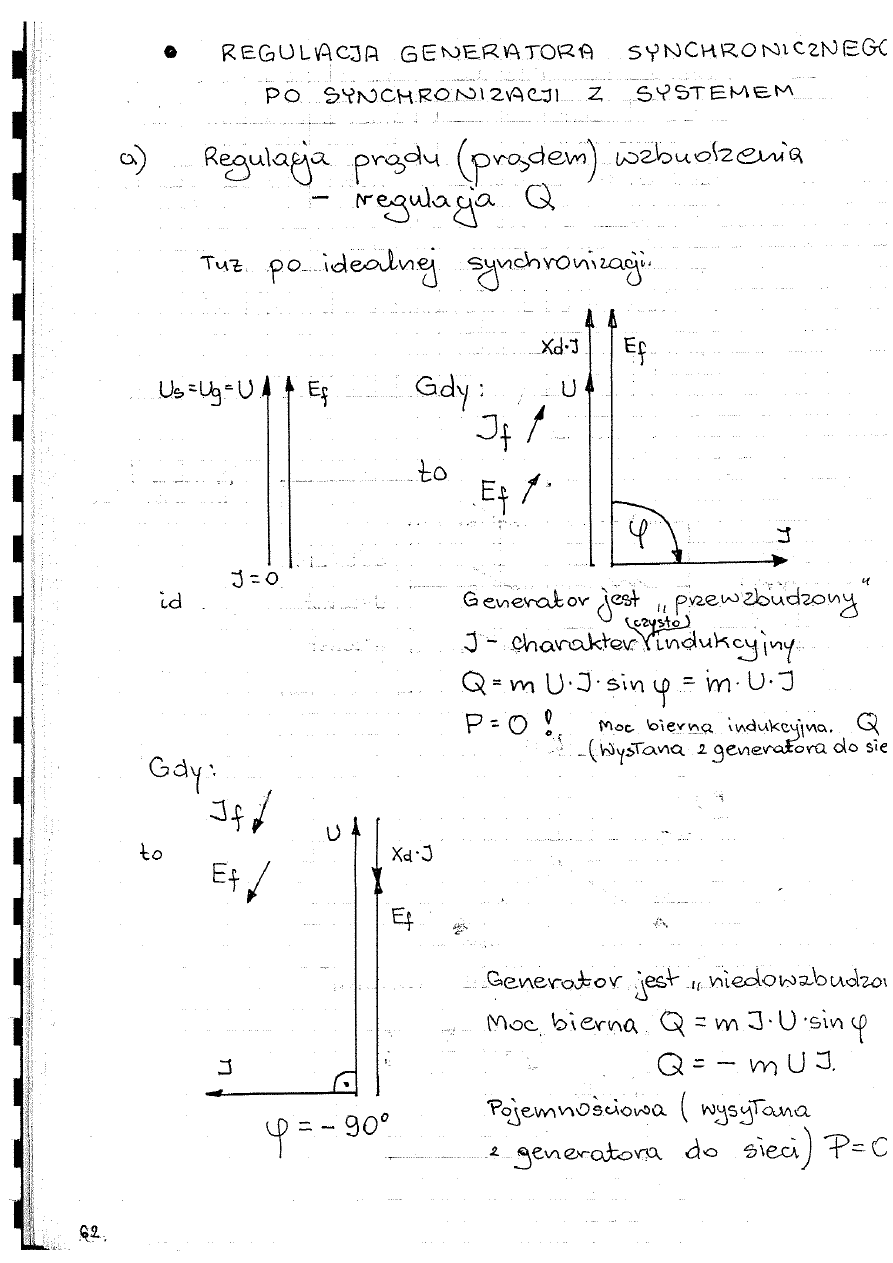 • REGULACJA GENERATORA SYNCHRONICZNEGO
PO SYNCHRONIZACJI Z SYSTEMEM
a) Regulacja prądu (prądem) wzbudzenia
- regulacja Q
Tuż po idealnej synchronizacji.
Us=Ug=U Ef
J=0
id
Gdy:
Jf ↗
to
Ef ↗
Xd·J Ef
U
φ
J
Generator jest „przewzbudzony"
(czysto)
J - charakter indukcyjny
Q = m U·J·sin φ = m·U·J
P=0 ! Moc bierna indukcyjna. Q
(wysłana z generatora do sie
Gdy:
Jf ↙
to
Ef ↙
U
Xd·J
Ef
J
φ = - 90°
Generator jest „niedowzbudzo
Moc bierna Q = m J·U·sin φ
Q = - m U J.
Pojemnościowa (wysyłana
z generatora do sieci) P=0
62.